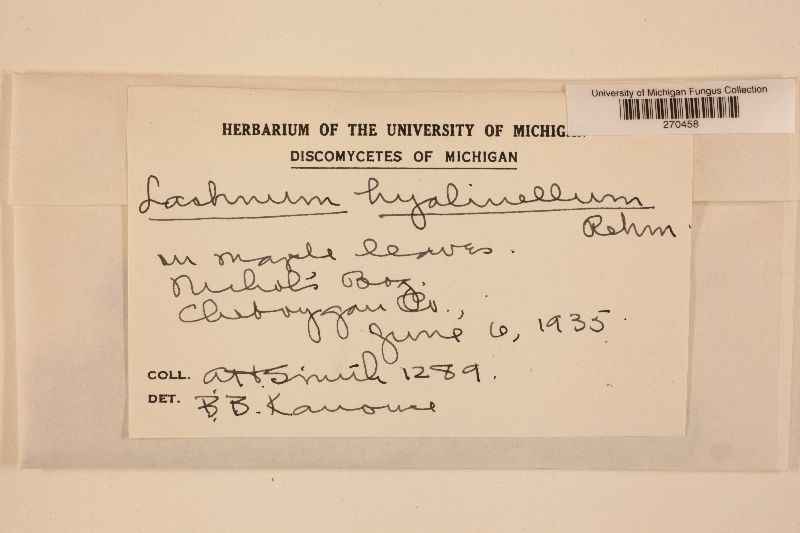 University of Michigan Fungus Collection
270458
HERBARIUM OF THE UNIVERSITY OF MICHIGAN
DISCOMYCETES OF MICHIGAN
Lachnum hyalinellum
Rehm.
on maple leaves.
Nichol's Bog.
Cheboygan Co.,
June 6, 1935.
COLL. AH Smith 1289.
DET. B.B. Kanouse